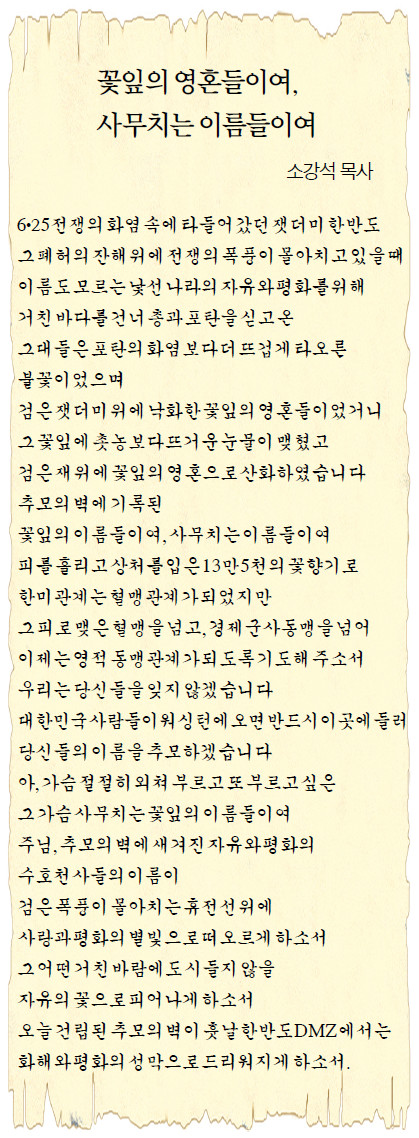 꽃잎의 영혼들이여,
사무치는 이름들이여
소강석 목사
6•25전쟁의 화염 속에 타들어 갔던 잿더미 한반도
그 폐허의 잔해 위에 전쟁의 폭풍이 몰아치고 있을 때
이름도 모르는 낯선 나라의 자유와 평화를 위해
거친 바다를 건너 총과 포탄을 싣고 온
그대들은 포탄의 화염보다 더 뜨겁게 타오른
불꽃이었으며
검은 잿더미 위에 낙화한 꽃잎의 영혼들이었거니
그 꽃잎에 촛농보다 뜨거운 눈물이 맺혔고
검은 재 위에 꽃잎의 영혼으로 산화하였습니다
추모의 벽에 기록된
꽃잎의 이름들이여, 사무치는 이름들이여
피를 흘리고 상처를 입은 13만5천의 꽃향기로
한미관계는 혈맹관계가 되었지만
그 피로 맺은 혈맹을 넘고, 경제 군사동맹을 넘어
이제는 영적 동맹관계가 되도록 기도해 주소서
우리는 당신들을 잊지 않겠습니다
대한민국 사람들이 워싱턴에 오면 반드시 이곳에 들러
당신들의 이름을 추모하겠습니다
아, 가슴 절절히 외쳐 부르고 또 부르고 싶은
그 가슴 사무치는 꽃잎의 이름들이여
주님, 추모의 벽에 새겨진 자유와 평화의
수호천사들의 이름이
검은 폭풍이 몰아치는 휴전선 위에
사랑과 평화의 별빛으로 떠오르게 하소서
그 어떤 거친 바람에도 시들지 않을
자유의 꽃으로 피어나게 하소서
오늘 건립된 추모의 벽이 훗날 한반도 DMZ에서는
화해와 평화의 성막으로 드리워지게 하소서.